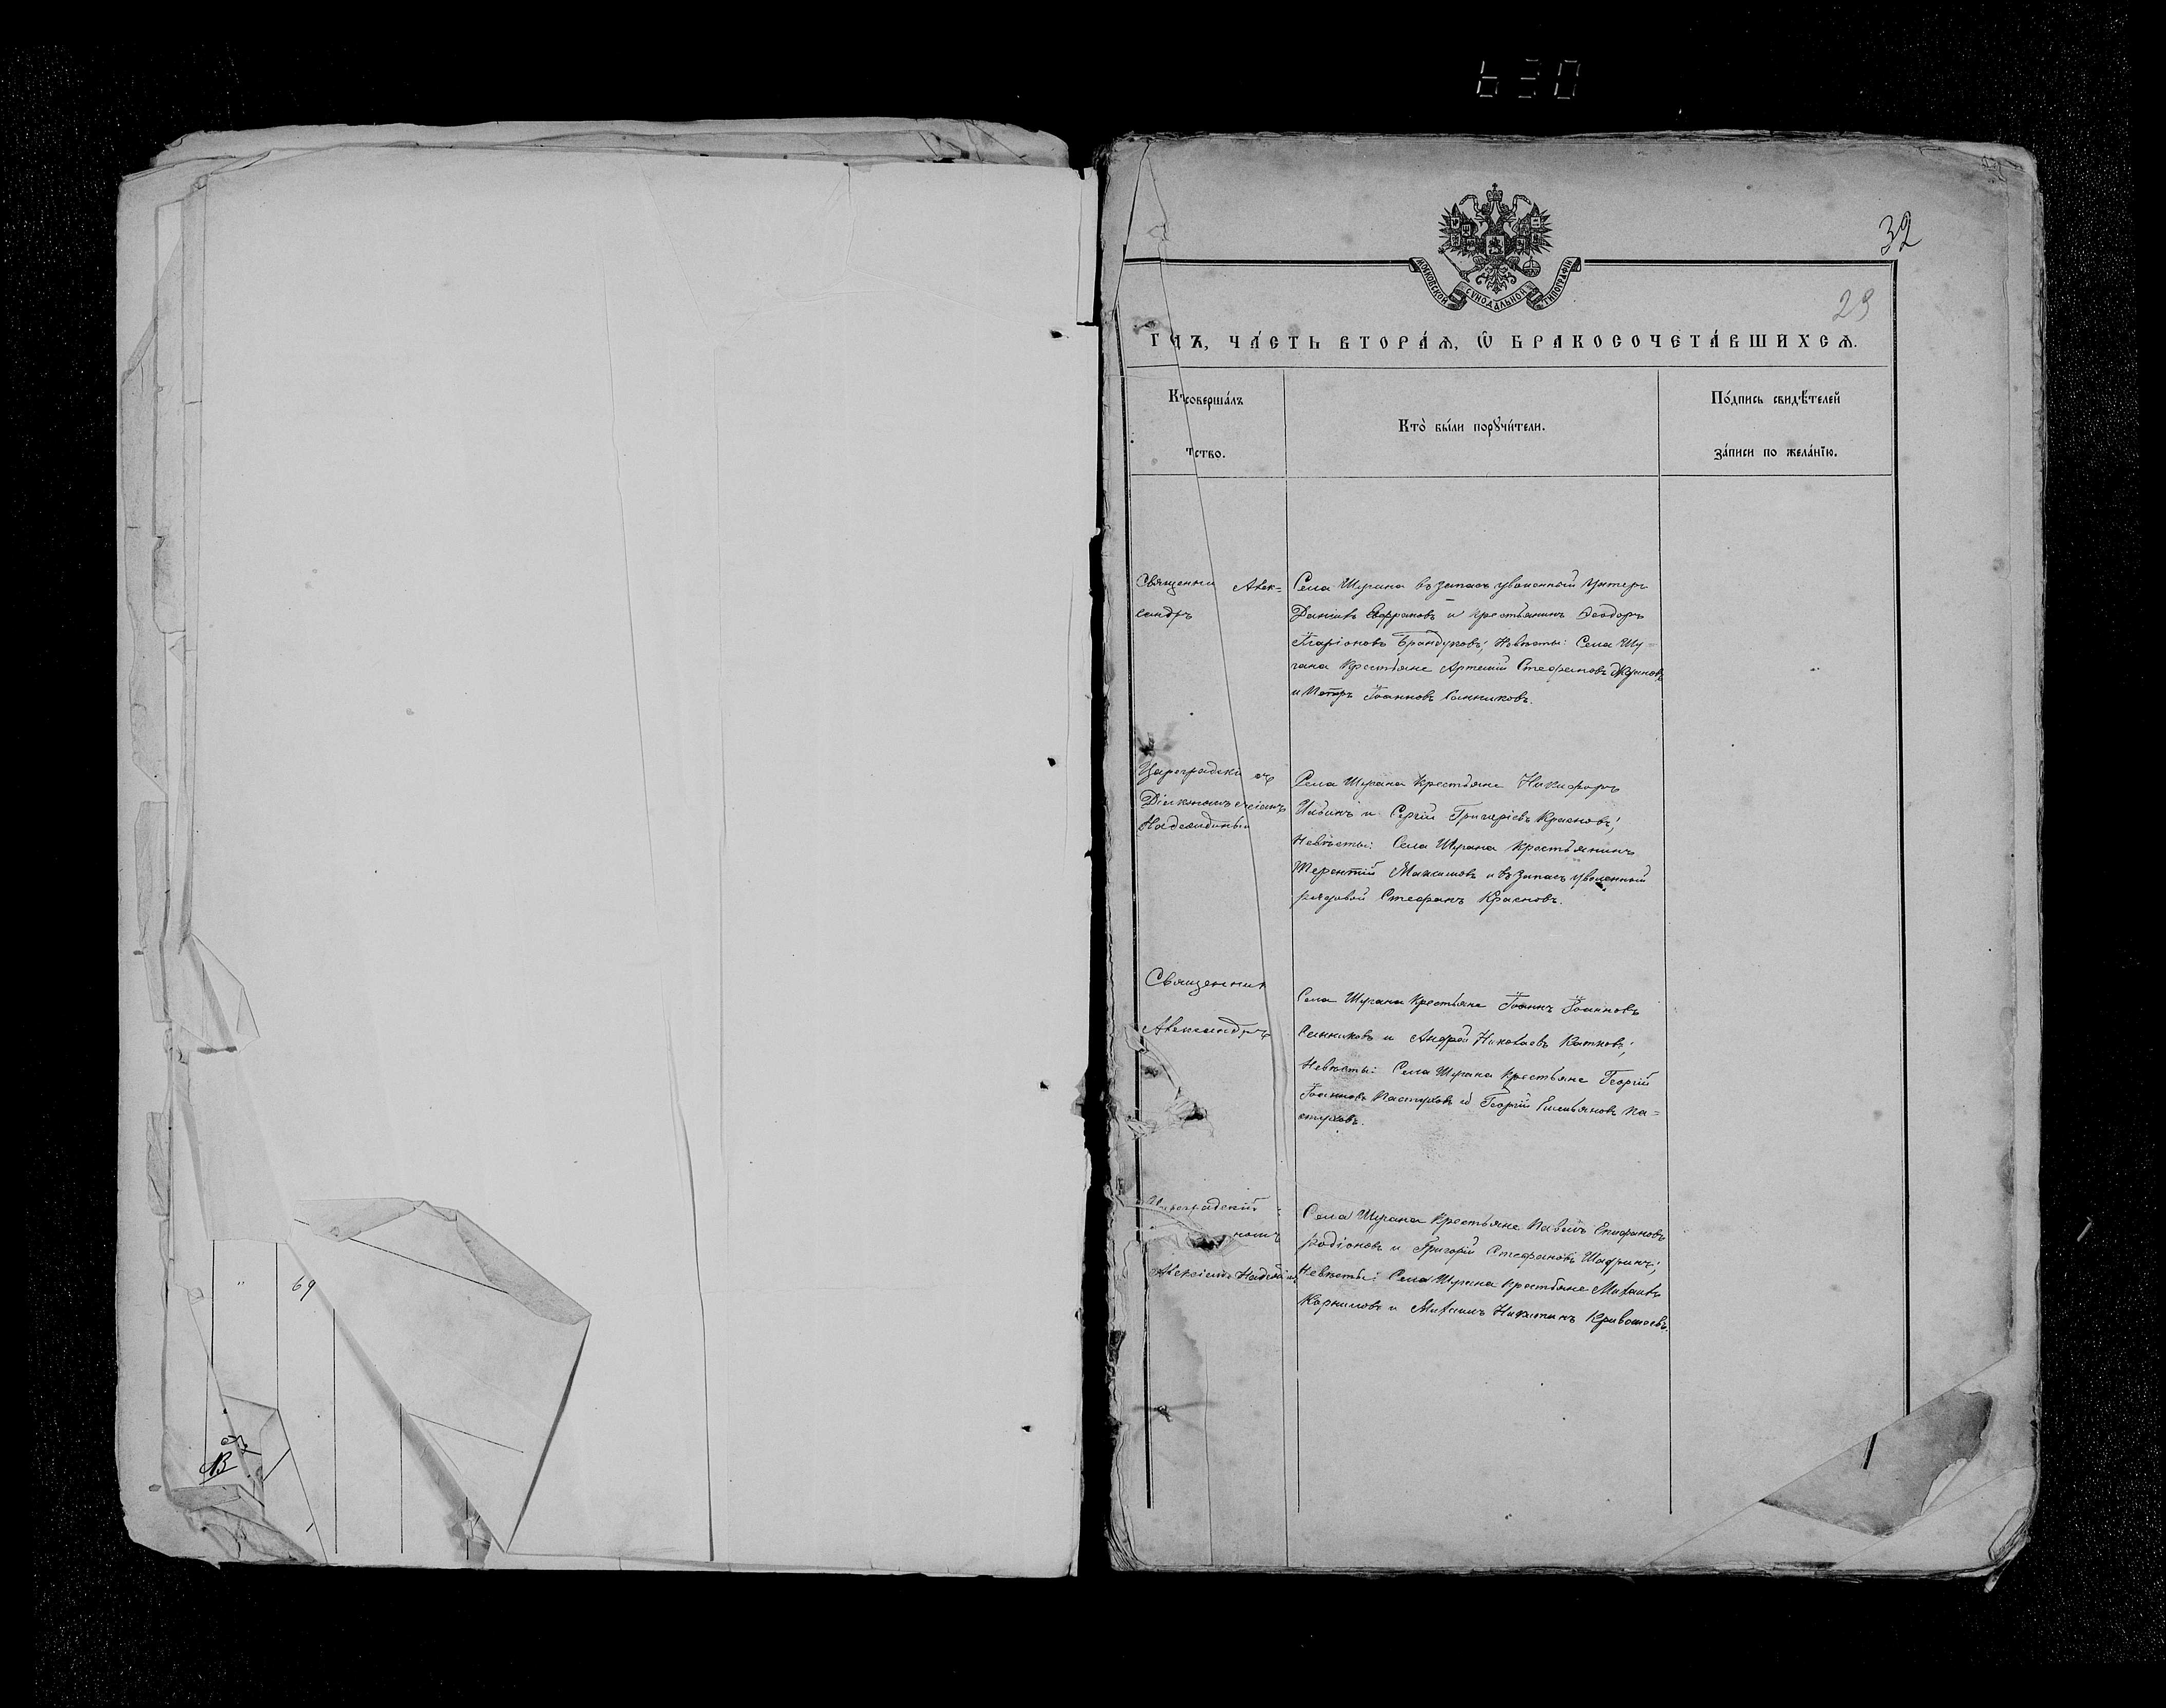 630
32
29
МОСКОВСКОЙ СѴНОДАЛЬНОЙ ТИПОГРАФІИ
ЧА́СТЬ ВТОРА́Ѧ, Ѿ БРАКОСОЧЕТА́ВШИХСѦ.
совершáлъ
тство.
Ктò бы́ли порꙋчи́тели.
По́дпись свидѣ́телей
за́писи по жела́нїю.
Священни Алек=
сандръ
Села Шурана въ запасъ уволенный Унтеръ
Даніилъ и крестьянинъ Ѳеодоръ
Иларіоновъ Брандуковъ; Невѣсты: Села Шу=
рана Крестьяне Артемій Стефановъ
и Петръ Іоанновъ Санниковъ.
Цареградскій съ
Діакономъ
Надеждинымъ
Села Шурана Крестьяне Никифоръ
Ильинъ и Сергій Григоріевъ Красновъ;
Невѣсты: Села Шурана Крестьянинъ
Терентій Максимовъ и въ запасъ уволенный
рядовой Стефанъ Красновъ.
Священник
Александръ
Села Шурана Крестьяне Іоаннъ Іоанновъ
Санниковъ и Андрей Николаевъ Катковъ;
Невѣсты: Села Шурана Крестьяне Георгій
Іоанновъ Пастуховъ и Георгій Емельяновъ Па=
стуховъ.
Цареградскій
номъ
Алексіемъ
Села Шурана Крестьяне Павелъ Епифановъ
Родіоновъ и Григорій Стефановъ Шадринъ;
Невѣсты: Села Шурана Крестьяне Михаилъ
Корниловъ и Михаилъ Никитинъ Кривошеевъ.
" 69